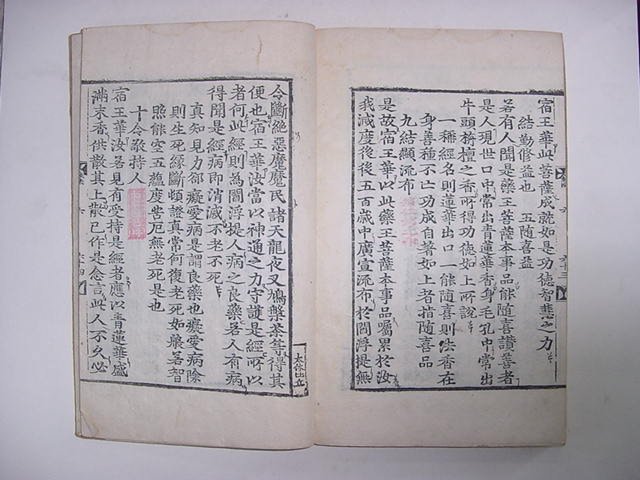 宿王華此菩薩成就如是功德智慧之力
結勤修益也 五隨喜益
若有人聞是藥王菩薩本事品能隨喜讚善者
是人現世口中常出青蓮華香身毛孔中常出
牛頭栴檀之香所得功德如上所說
一稱經名則蓮華出口一能隨喜則法香在
身善種不亡功成自著如上者指隨喜品
九結顯流布
是故宿王華以此藥王菩薩本事品屬累於汝
我滅度後後五百歲中廣宣流布於閻浮提無
令斷絕惡魔魔民諸天龍夜叉鳩槃茶等得其
便也宿王華汝當以神通之力守護是經所以
者何此經則為閻浮提人病之良藥若人有病
得聞是經病即消滅不老不死
真知見力卻癡愛病是謂良藥也癡愛病除
則生死緣斷頓證真常何復老死如藥若智
照能空五蘊度苦厄無老死是也
十令敬持人
宿王華汝若見有受持是經者應以青蓮華盛
滿末香供散其上散已作是念言此人不久必